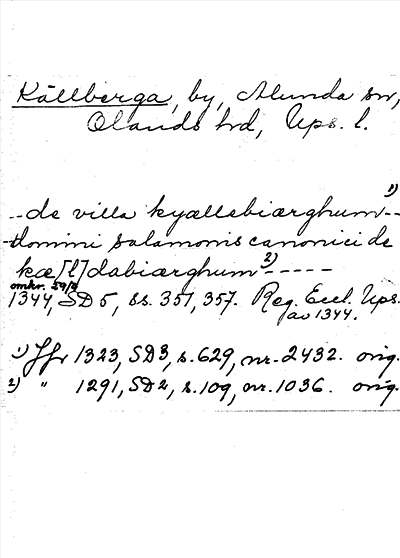 Källberga, by, Alunda sn,
Olands hrd, Ups. l.
1)
--de villa kyællebiærghum--
-domini salamonis canonici de
kæ[l]dabiærghum 2)-----
omkr. 29/8
1344, SD 5, ss. 351, 357. Reg. Eccl. Ups.
av 1344.
1) Jfr 1323, SD 3, s. 629, nr. 2432. orig.
2) " 1291, SD 2, s. 109, nr. 1036. orig.